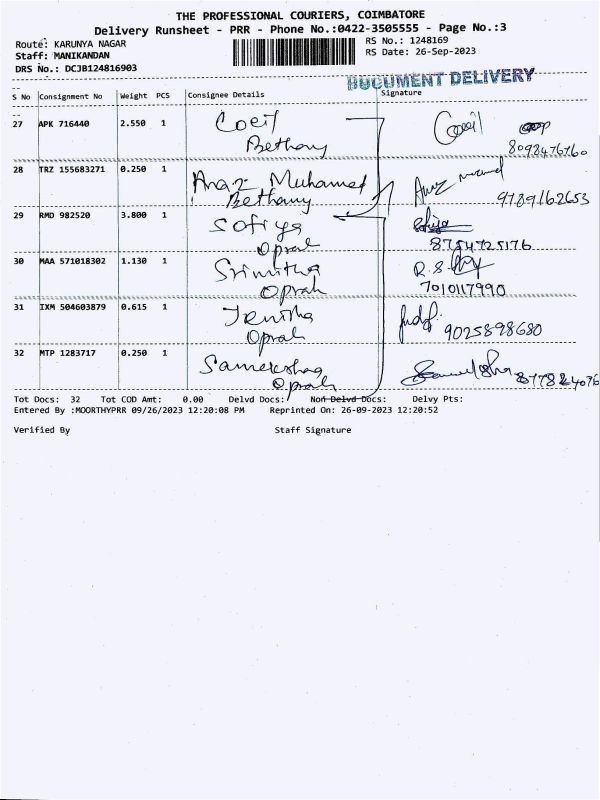 THE PROFESSIONAL COURIERS, COIMBATORE
Delivery Runsheet - PRR - Phone No.:0422-3505555 - Page No.:3
Route: KARUNYA NAGAR RS No.: 1248169
Staff: MANIKANDAN RS Date: 26-Sep-2023
DRS No.: DCJB124816903
DOCUMENT DELIVERY
S No Consignment No Weight PCS Consignee Details Signature
27 APK 716440 2.550 1 Coeil
Bethany 8098476760
28 TRZ 155683271 0.250 1 Anaz Muhamed
Bethany 9789162653
29 RMD 982520 3.800 1 Sofiya
Oprah 8754725176
30 MAA 571018302 1.130 1 Srimitha R.S
Oprah 7010117990
31 IXM 504603879 0.615 1
Oprah 9025898680
32 MTP 1283717 0.250 1 Sameksha
Oprah
Tot Docs: 32 Tot COD Amt: 0.00 Delvd Docs: Non Delvd Docs: Delvy Pts:
Entered By :MOORTHYPRR 09/26/2023 12:20:08 PM Reprinted On: 26-09-2023 12:20:52
Verified By Staff Signature